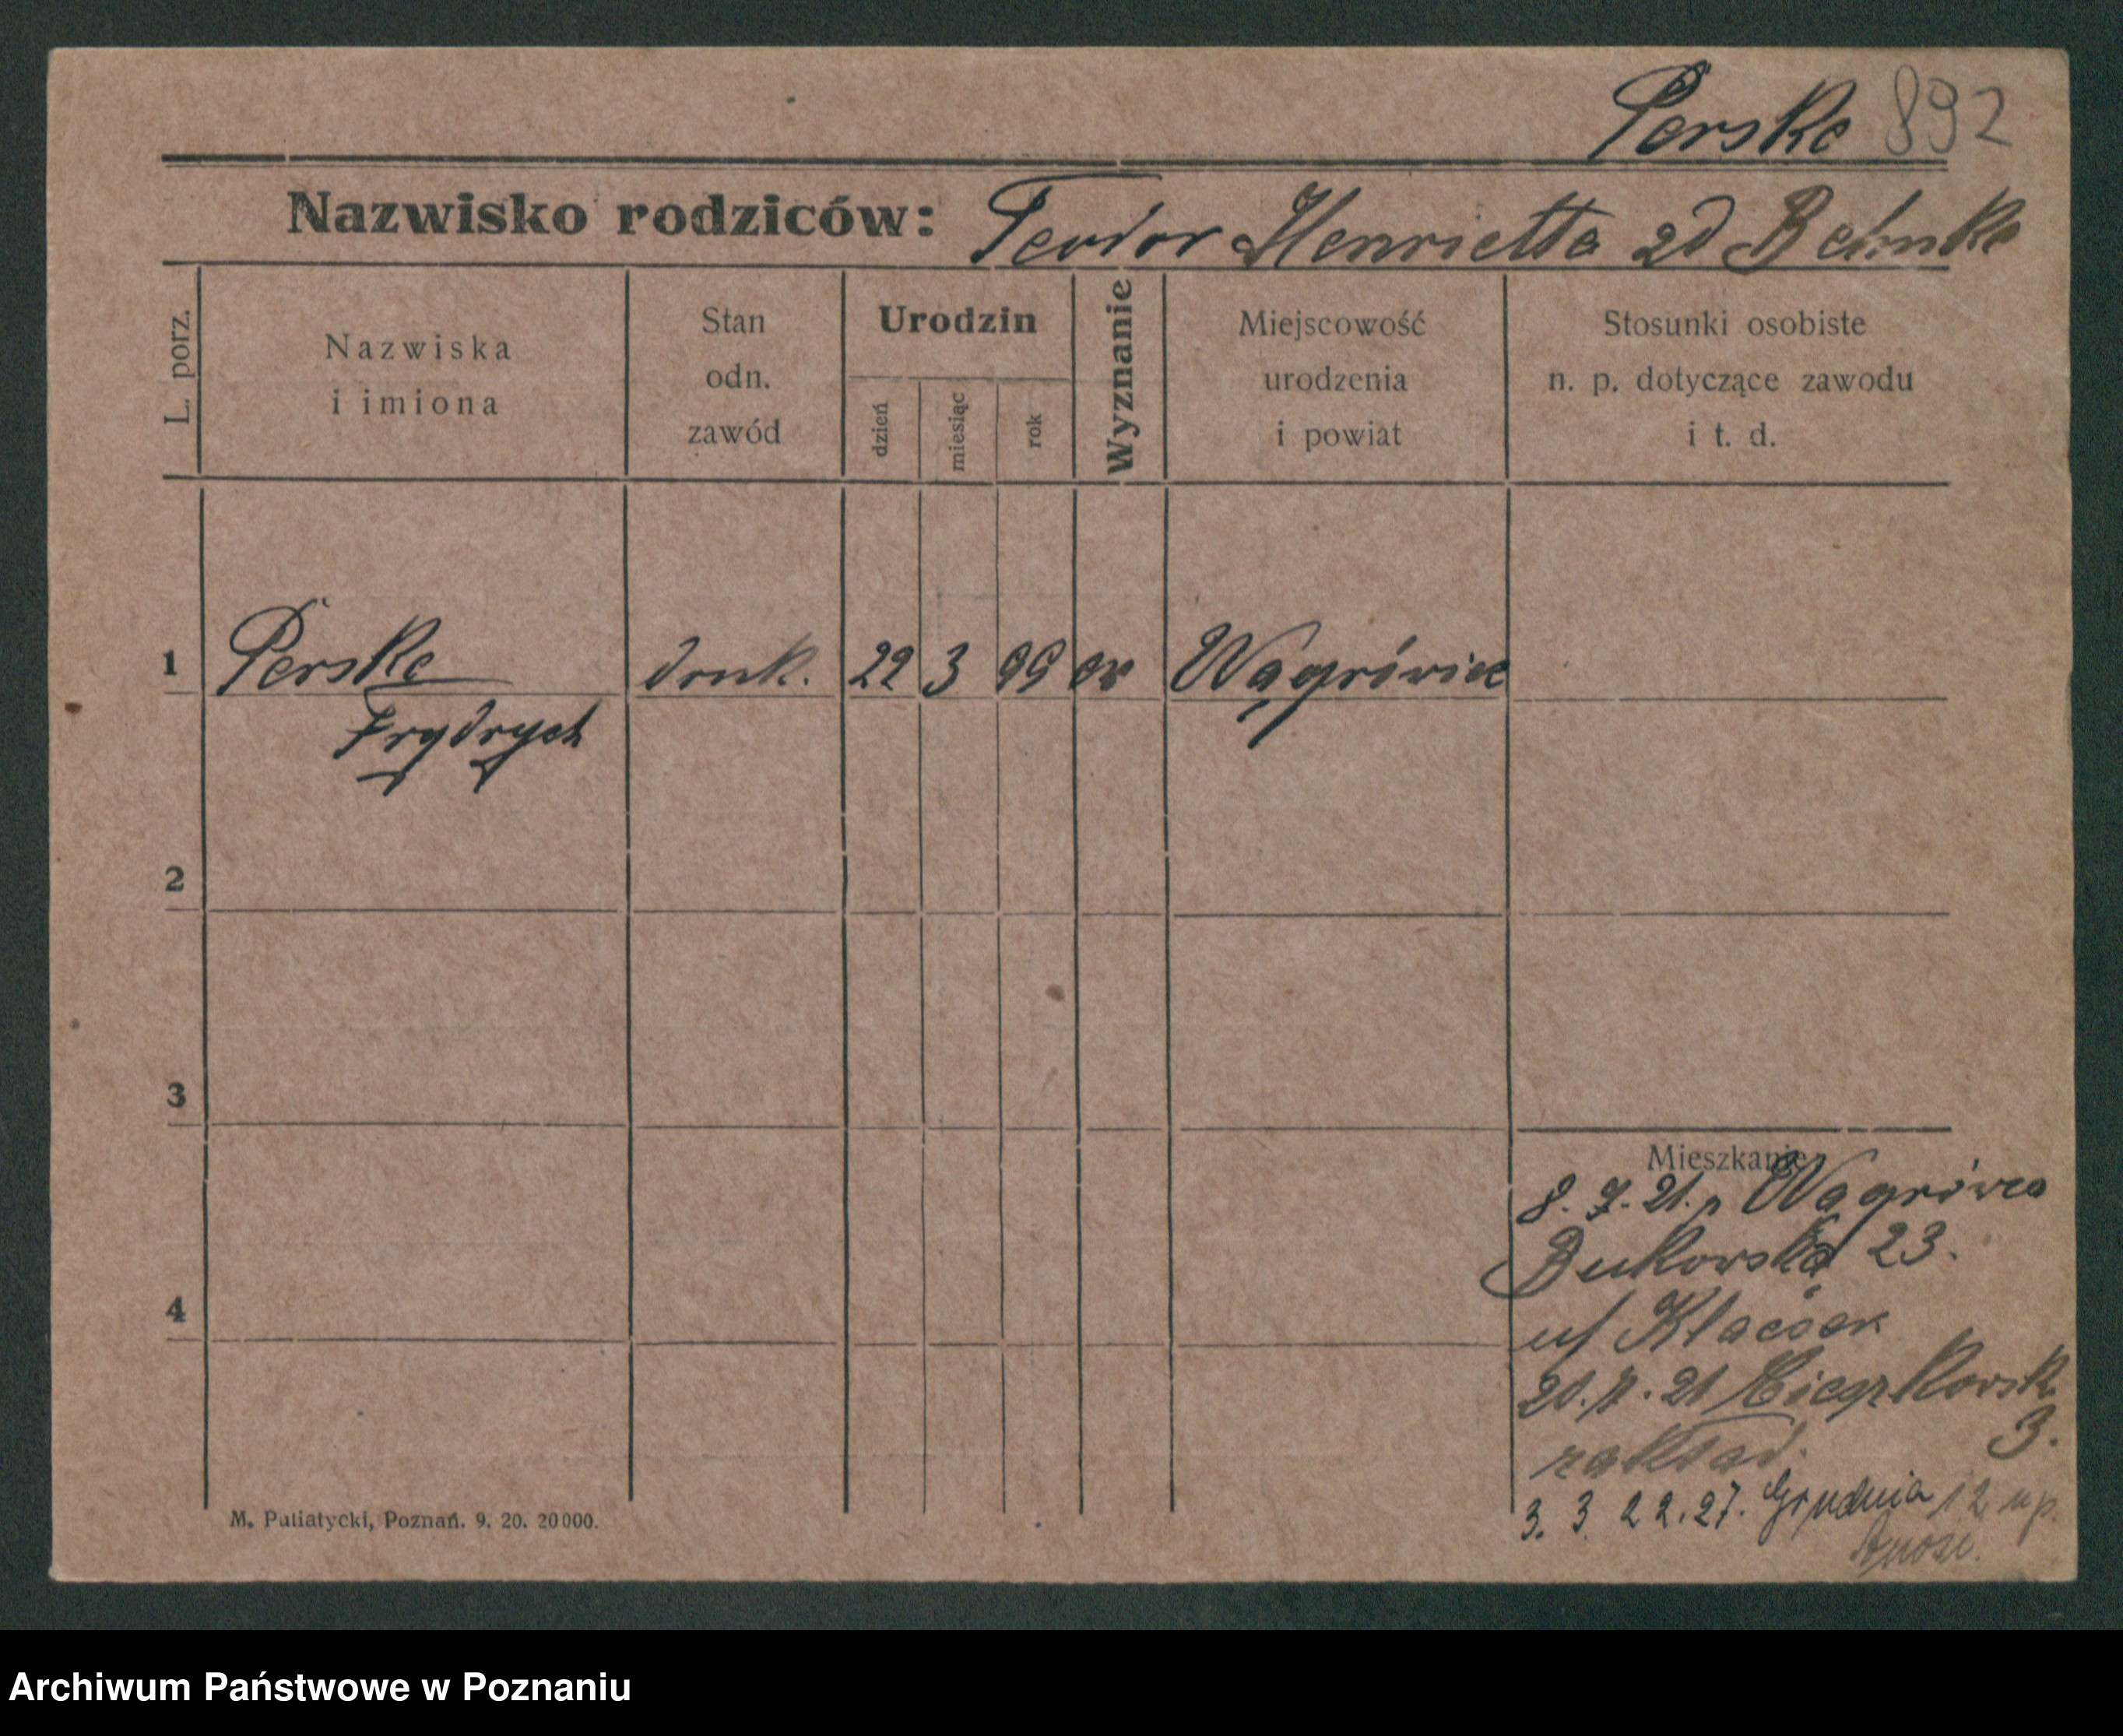 Perske 892
Nazwisko rodziców: Teodor Henrietta zd Behnke
L. porz.
Nazwiska
i imiona
Stan
odn.
zawód
Urodzin
dzień
miesiąc
rok
Wyznanie
Miejscowość
urodzenia
i powiat
Stosunki osobiste
n. p. dotyczące zawodu
i t. d.
1 Perske druk. 22 3 99 ew Wągrówiec
Frydrych
2
3
4
Mieszkanie
8. 7. 21. z Wągrówca
Bukowska 23.
u/
21. 7. 21
3.
zakład.
3. 3. 22. 27. Grudnia 12
M. Putiatycki, Poznań. 9. 20. 20000.
Archiwum Państwowe w Poznaniu